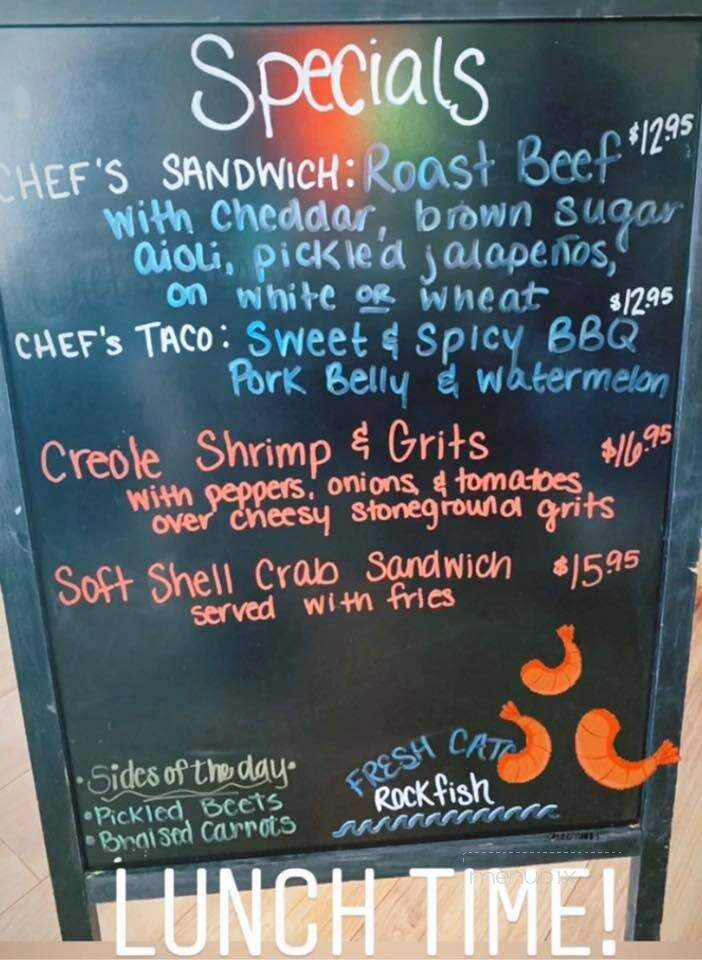 Specials
CHEF'S SANDWICH: Roast Beef $12.95
with cheddar, brown sugar
aioli, pickled jalapeños,
on white OR wheat
CHEF'S TACO: Sweet & Spicy BBQ $12.95
Pork Belly & watermelon
Creole Shrimp & Grits $16.95
with peppers, onions, & tomatoes
over cheesy stoneground grits
Soft Shell Crab Sandwich $15.95
served with fries
•Sides of the day•
•Pickled Beets
•Braised Carrots
FRESH CATC
Rockfish
menupix
LUNCH TIME!